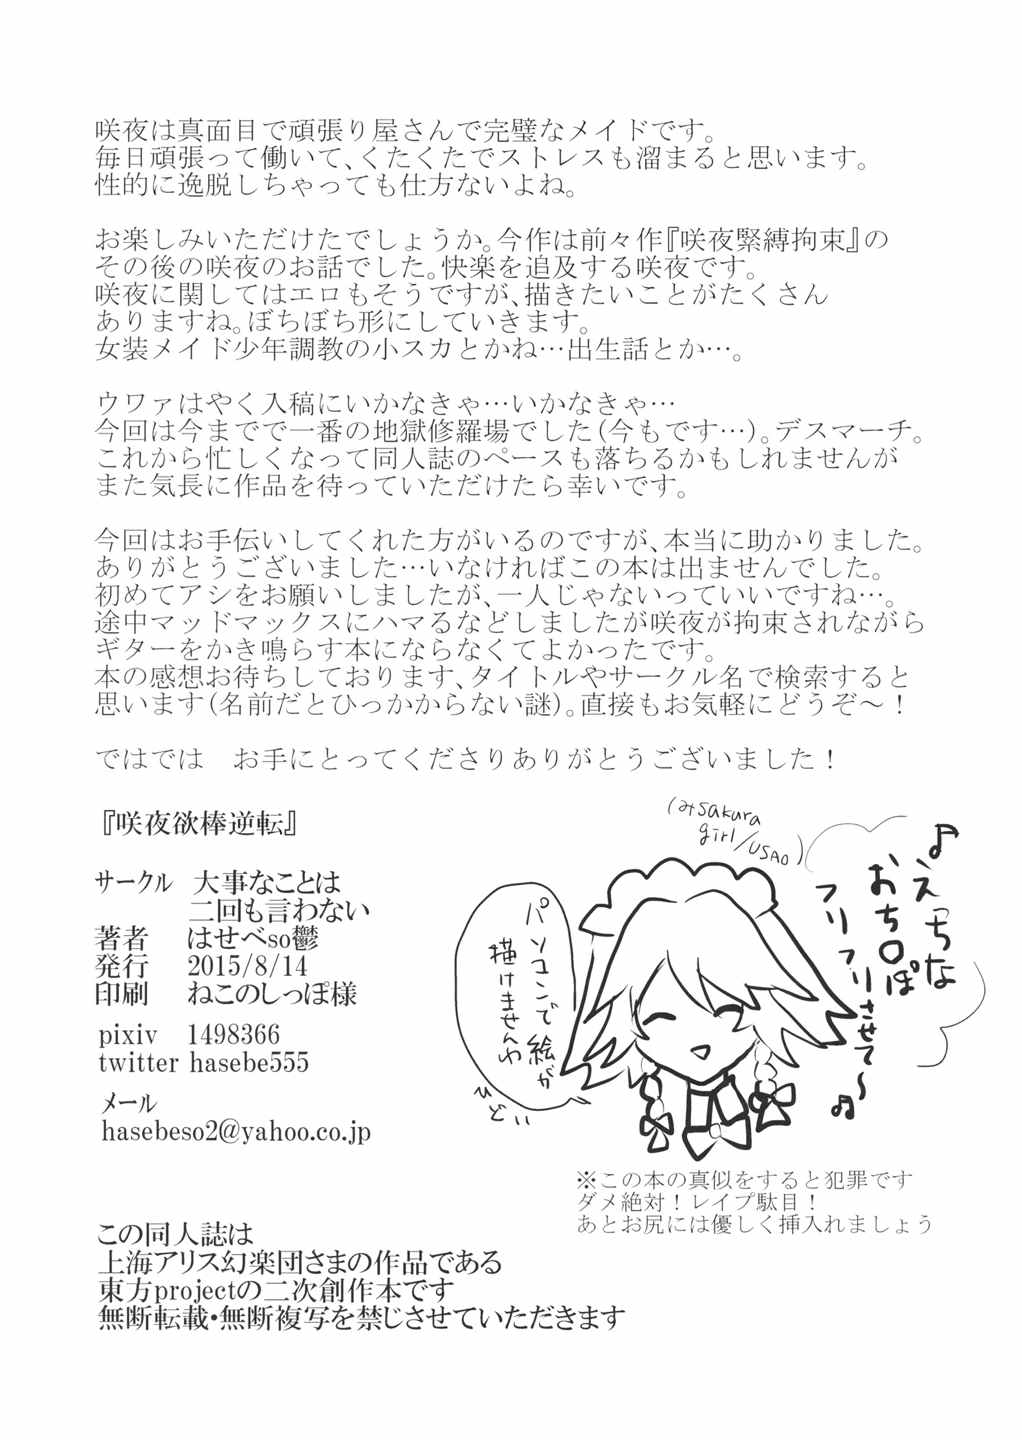 咲夜は真面目で頑張り屋さんで完璧なメイドです。
毎日頑張って働いて、くたくたでストレスも溜まると思います。
性的に逸脱しちゃっても仕方ないよね。
お楽しみいただけたでしょうか。今作は前々作『咲夜緊縛拘束』の
その後の咲夜のお話でした。快楽を追及する咲夜です。
咲夜に関してはエロもそうですが、描きたいことがたくさん
ありますね。ぼちぼち形にしていきます。
女装メイド少年調教の小スカとかね…出生話とか…。
ウワァはやく入稿にいかなきゃ…いかなきゃ…
今回は今までで一番の地獄修羅場でした(今もです…)。デスマーチ。
これから忙しくなって同人誌のペースも落ちるかもしれませんが
また気長に作品を待っていただけたら幸いです。
今回はお手伝いしてくれた方がいるのですが、本当に助かりました。
ありがとうございました…いなければこの本は出ませんでした。
初めてアシをお願いしましたが、一人じゃないっていいですね…。
途中マッドマックスにハマるなどしましたが咲夜が拘束されながら
ギターをかき鳴らす本にならなくてよかったです。
本の感想お待ちしております、タイトルやサークル名で検索すると
思います(名前だとひっかからない謎)。直接もお気軽にどうぞ～！
ではでは　お手にとってくださりありがとうございました！
『咲夜欲棒逆転』
サークル 大事なことは
二回も言わない
著者 はせべso鬱
発行 2015/8/14
印刷 ねこのしっぽ様
pixiv 1498366
twitter hasebe555
メール
hasebeso2@yahoo.co.jp
♪えっちな
おち〇ぽ
フリフリさせて～♫
(みsakura
girl/USAO)
パソコンで絵が
描けませんわ
ひどい
※この本の真似をすると犯罪です
ダメ絶対！レイプ駄目！
あとお尻には優しく挿入れましょう
この同人誌は
上海アリス幻楽団さまの作品である
東方projectの二次創作本です
無断転載・無断複写を禁じさせていただきます